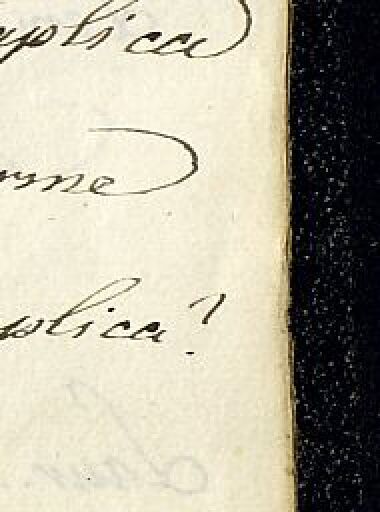 uplica
rme
plica?